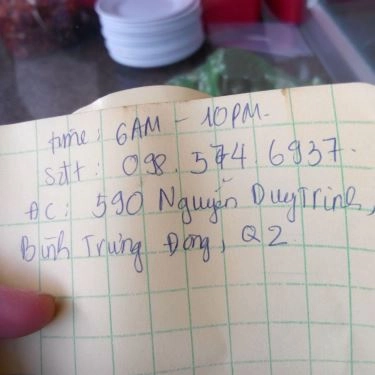 time: 6AM - 10PM.
Sđt: 098.574.6937.
ĐC: 590 Nguyễn Duy Trinh,
Bình Trưng Đông, Q2.